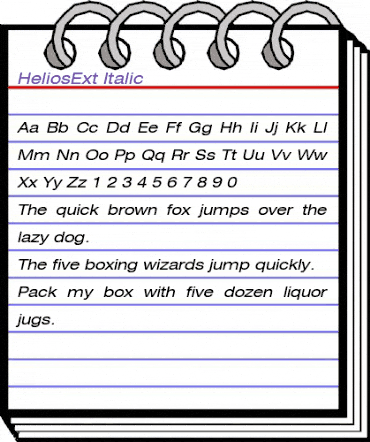 HeliosExt Italic
Aa Bb Cc Dd Ee Ff Gg Hh Ii Jj Kk Ll
Mm Nn Oo Pp Qq Rr Ss Tt Uu Vv Ww
Xx Yy Zz 1 2 3 4 5 6 7 8 9 0
The quick brown fox jumps over the
lazy dog.
The five boxing wizards jump quickly.
Pack my box with five dozen liquor
jugs.